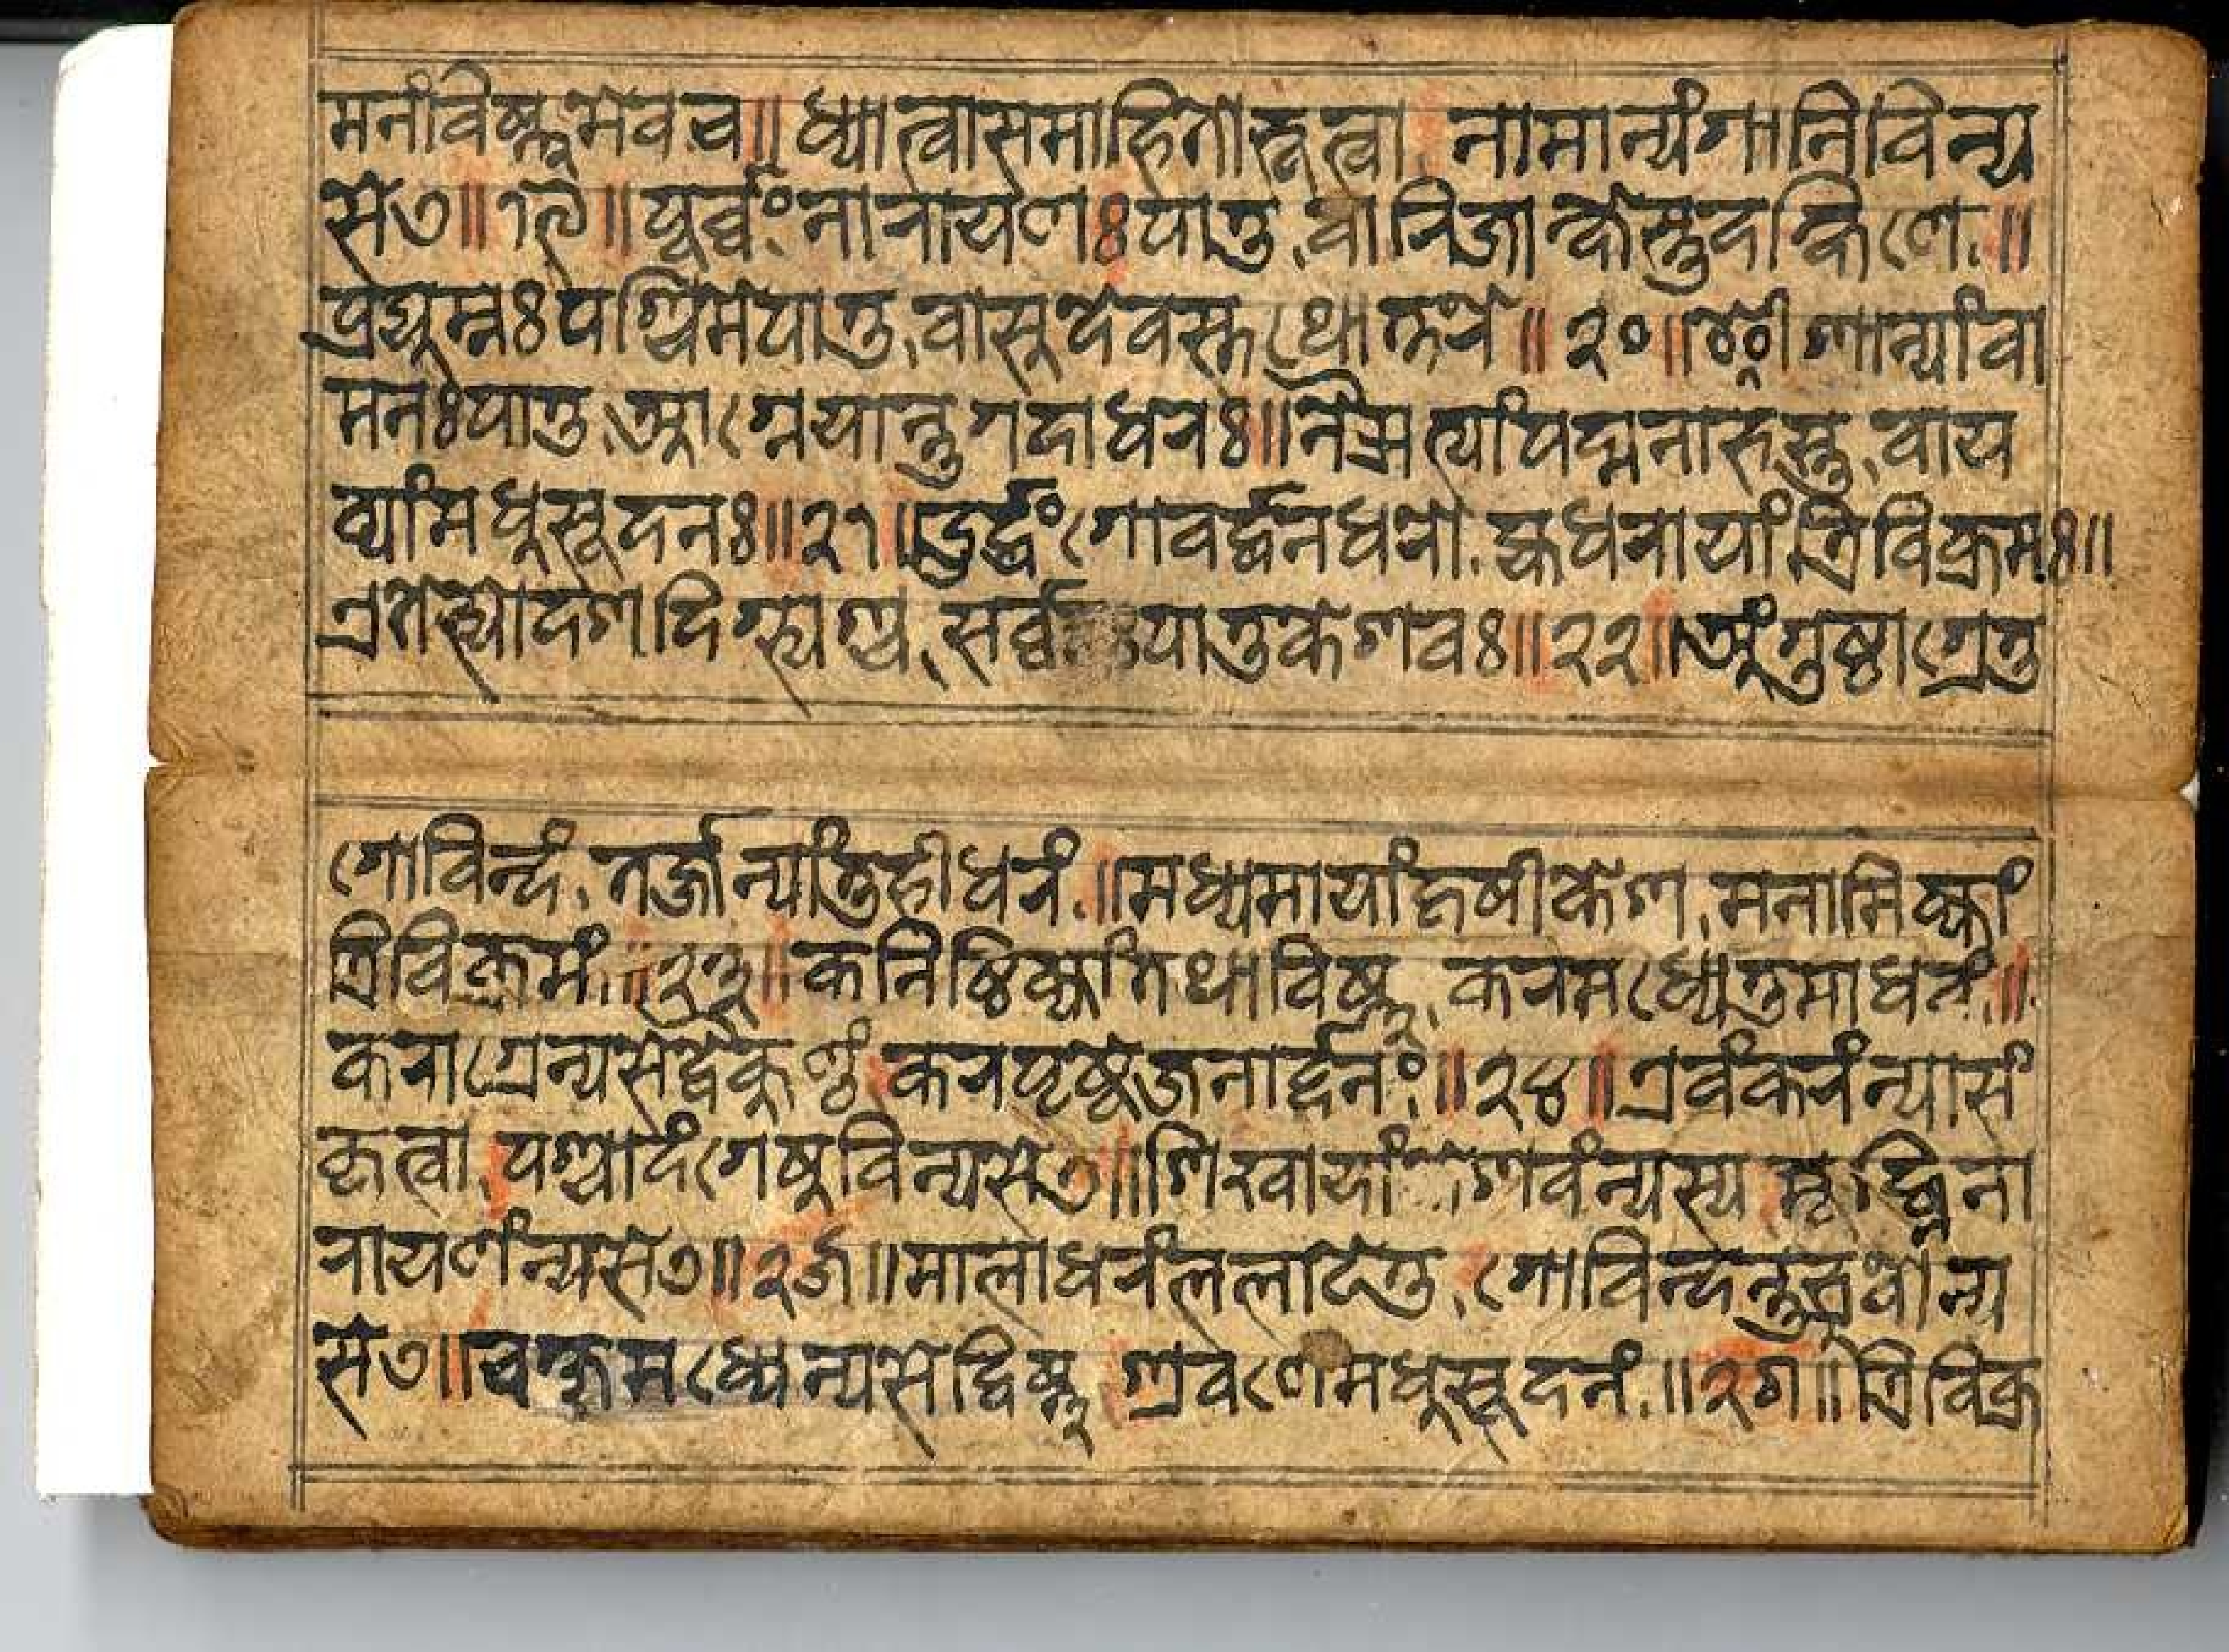 मनंविष्णुमेवच॥ध्यात्वासमाहितोभूत्वा नामान्यंगानिविन्य
सेत्॥१९॥पूर्व्वंःनारायणःपातु,वारिजाक्षेस्तुदक्षिणे॥
प्रद्युम्नःपश्चिमेपातु,वासूदेवस्तथोत्तरे॥२०॥ईशान्यांवा
मनःपातु,आग्नेयान्तुगदाधरः॥नैऋत्यांपद्मनाभस्तु,वाय
व्यांमधूसूदनः॥२१॥उर्द्धंगोवर्द्धनधरो,ह्यधरायांत्रिविक्रमः॥
एतेभ्योदशदिग्भ्यश्च,सर्व्व पातुकेशवः॥२२॥अंगुष्ठाग्रेतु
गोविन्दं,तर्जन्यांतुहीधरं॥मध्यमायांहृषीकेश,मनामिक्यां
त्रिविक्रमं॥२३॥कनिष्ठिक्यांतथाविष्णु,करमध्येतुमाधवं॥
कराग्रेन्यसेद्वैकूण्ठं करपृष्ठेजनार्द्दनंः॥२४॥एवंकरंन्यासं
कृत्वा,पश्चादंगेषूविन्यसेत्॥शिखायां शवंन्यस्य मूर्द्ध्निना
रायणंन्यसेत्॥२५॥मालाधरंललाटेतु,गोविन्दन्तुभ्रूवोन्य
सेत्॥चक्षूमध्येन्यसेद्विष्णु श्रवणेमधूसूदनं॥२६॥त्रिविक्र